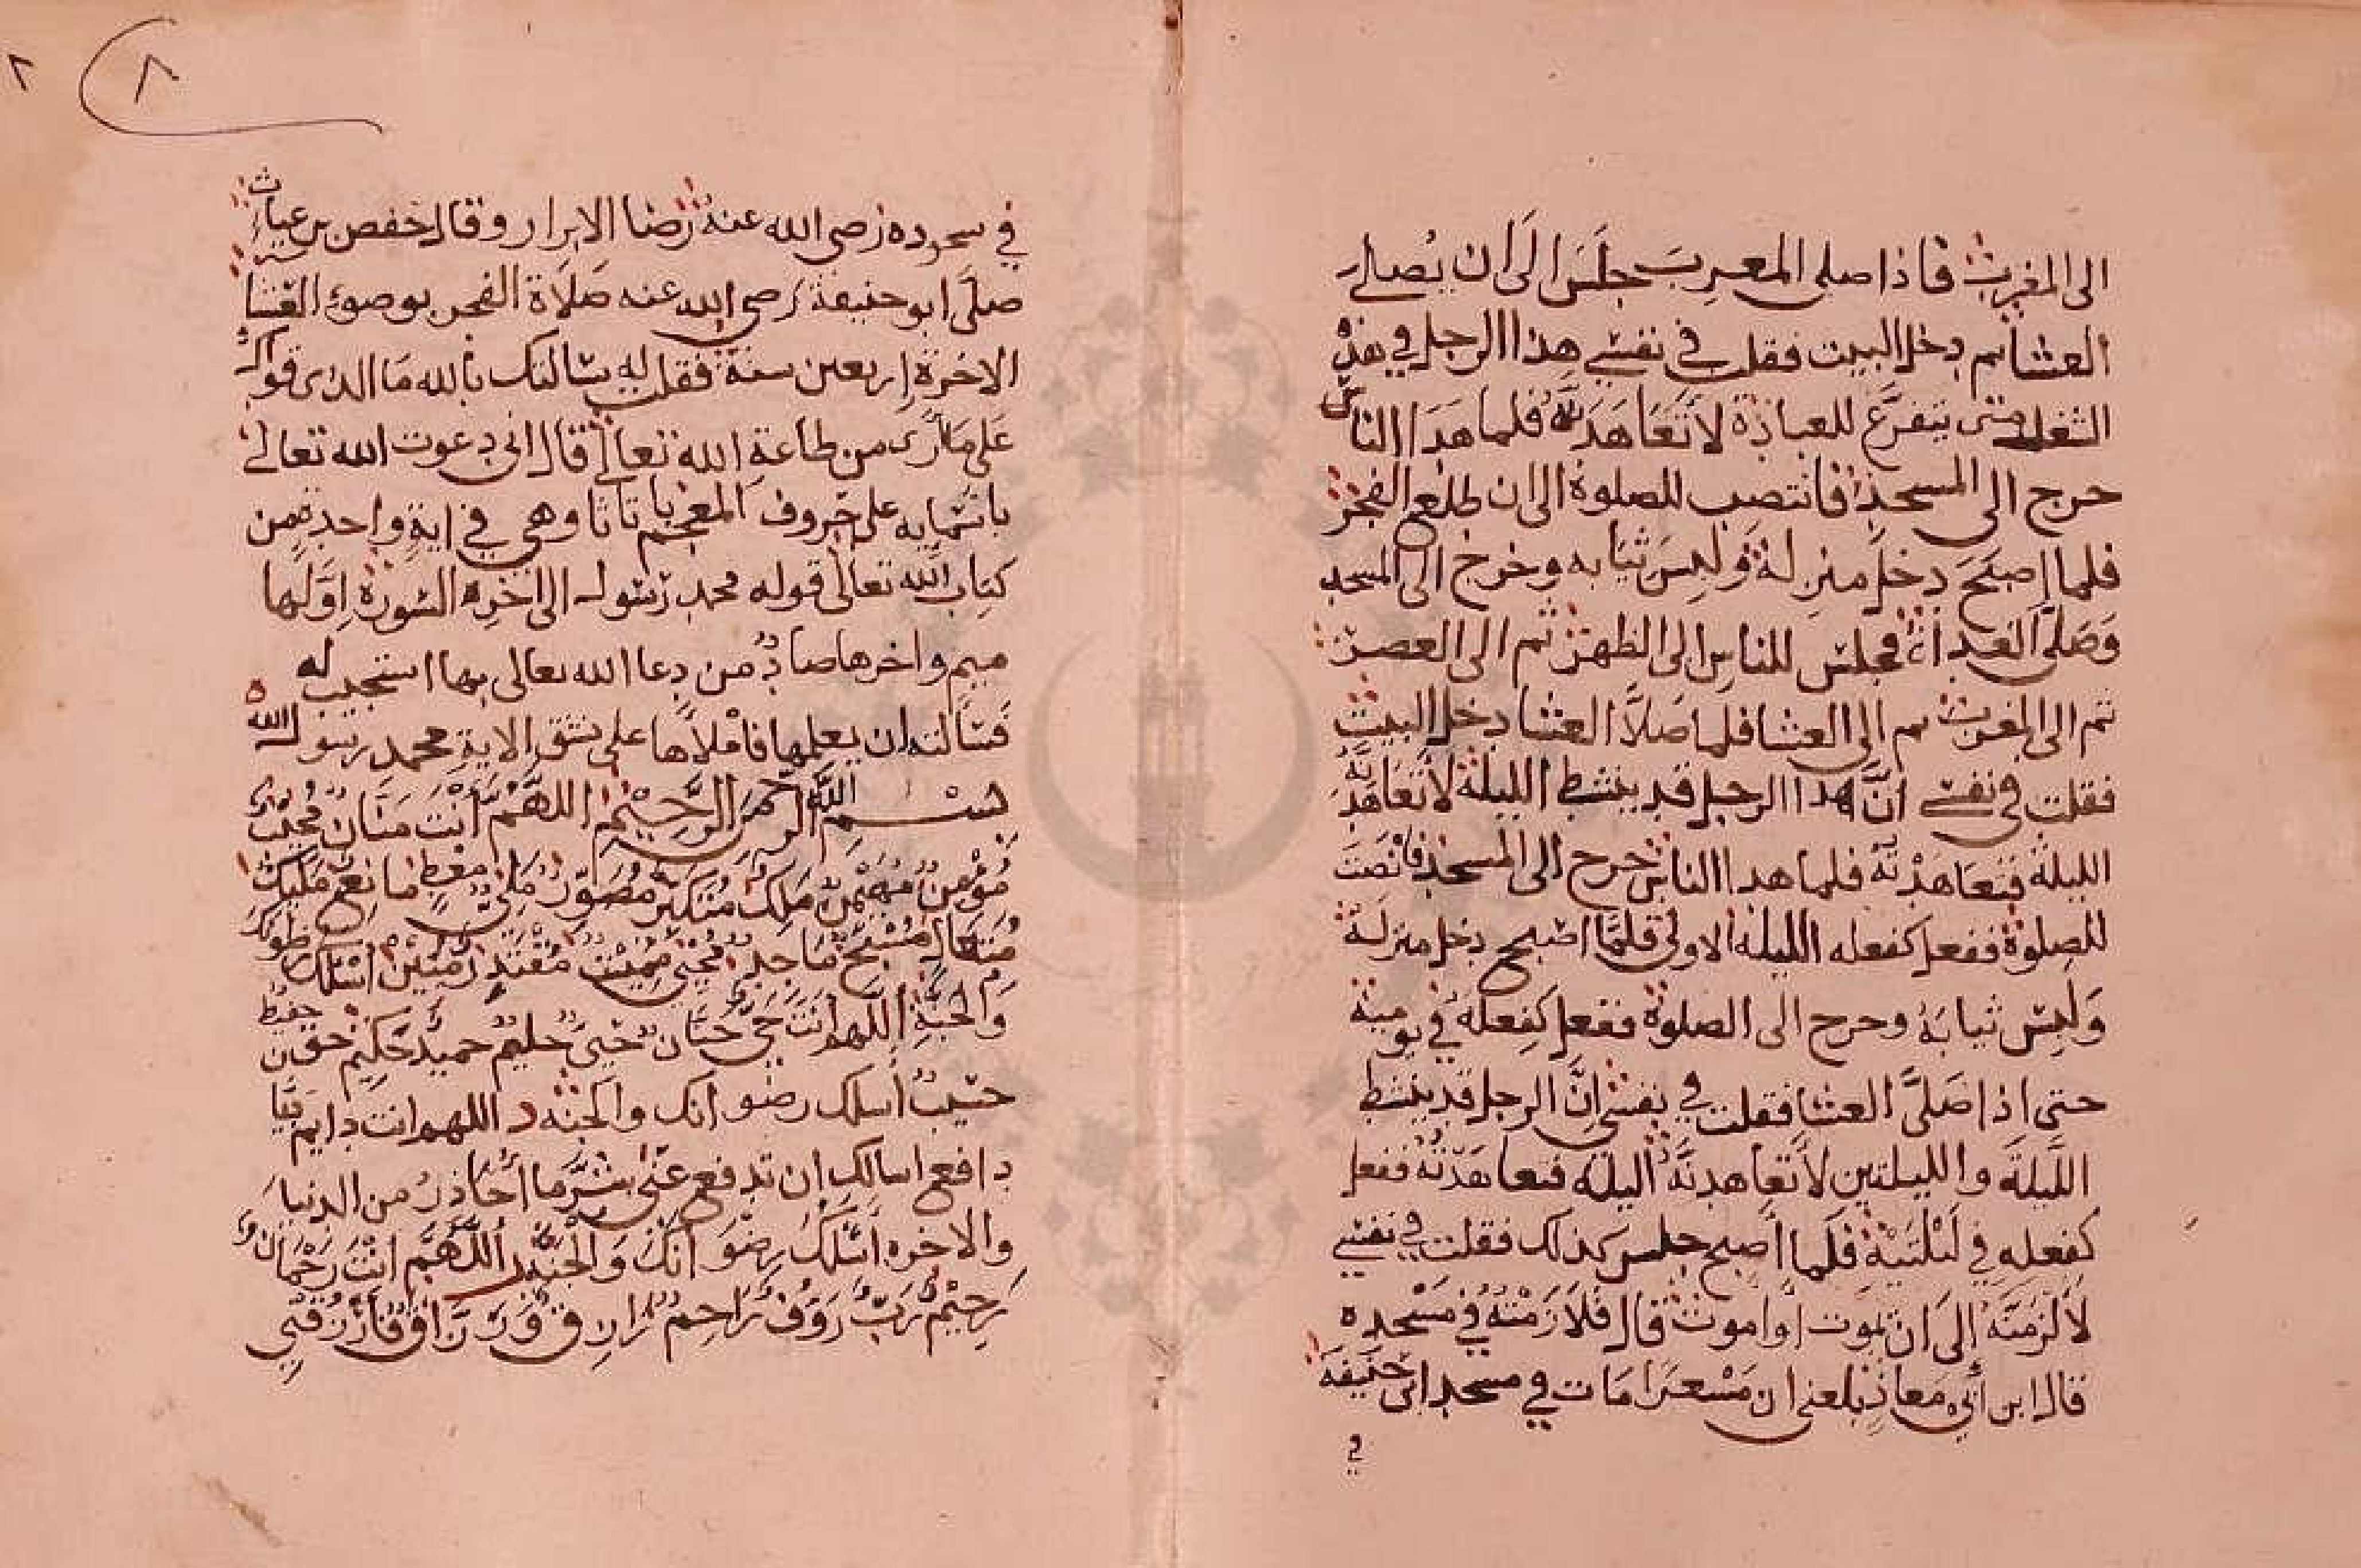 الى المغرب فاذا صلى المغرب جلس الى ان يصلى
العشا ثم دخل البيت فقلت في نفسي هذا الرجل في هذه
الشغل متى يتفرغ للعبادة لاتعاهدنه فلما هدا الناس
خرج الى المسجد فانتصب للصلوة الى ان طلع الفجر
فلما اصبح دخل منزله ولبس ثيابه وخرج الى المسجد
وصلى الغداة فجلس للناس الى الظهر ثم الى العصر
ثم الى المغرب ثم الى العشا فلما صلا العشا دخل البيت
فقلت في نفسي ان هذا الرجل قد ينشط الليلة لاتعاهدنه
الليلة فتعاهدته فلما هدا الناس خرج الى المسجد فانتصب
للصلوة ففعل كفعله الليلة الاولى فلما اصبح دخل منزله
ولبس ثيابه وخرج الى الصلوة ففعل كفعله في يوميه
حتى اذا صلى العشا فقلت في نفسي ان الرجل قد ينشط
الليلة والليلتين لاتعاهدنه الليلة فتعاهدته ففعل
كفعله في ليلتيه فلما اصبح جلس كذلك فقلت في نفسي
لالزمنه الى ان يموت او اموت قال فلازمته في مسجده
قال ابن ابي معاذ بلغني ان مسعرا مات في مسجد ابي حنيفة
في
٨
٢
في سجوده رضي الله عنه رضا الابرار وقال حفص بن غياث
صلى ابو حنيفة رضي الله عنه صلاة الفجر بوضوء العشا
الاخرة اربعين سنة فقلت له سالتك بالله ما الذي قواك
على ما ارى من طاعة الله تعالى قال اني دعوت الله تعالى
باسمايه على حروف المعجم با تا ثا وهي في اية واحدة من
كتاب الله تعالى قوله محمد رسول الى اخره السورة اولها
ميم واخرها صاد من دعا الله تعالى بها استجيب له
فسالته ان يعلمها فاملاها على نسق الاية محمد رسول الله
بسم الله الرحمن الرحيم اللهم انت منان مجيب
مؤمن مهيمن ملك متكبر مصور ملي معط مانع مليك
متعال مسبح ماجد محيي مميت مقتدر متين اسلك رضوانك
والجنة اللهم انت حي حنان حيي حليم حميد حكيم حق حفيظ
حسيب اسلك رضوانك والجنة د اللهم انت دايم
دافع اسالك ان تدفع عني شر ما احاذر من الدنيا
والاخره اسلك رضوانك والجنة ر اللهم انت رحمان
رحيم رب رووف راحم رازق فارزقني